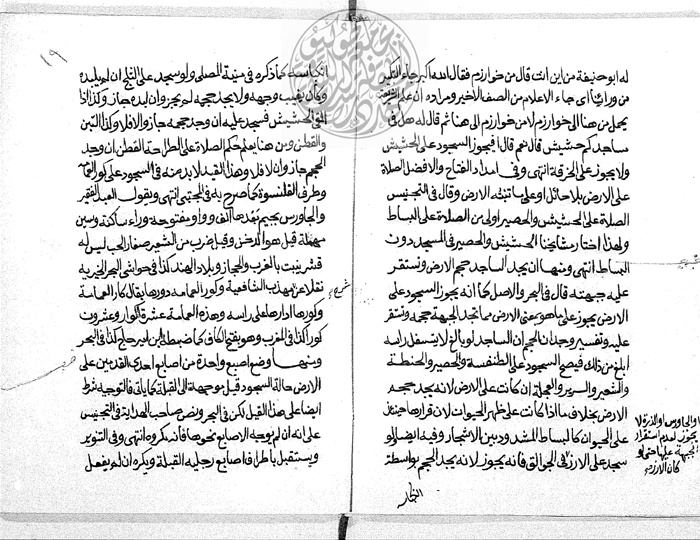 له ابوحنيفة من اين انت قال من خوارزم فقال الله اكبر جاء التكبير
من ورائنا اى جاء الاعلام من الصف الاخير ومراده ان علم الشريعة
يحمل من هنا الى خوارزم لا من خوارزم الى هنا ثم قال له هل فى
مساجدكم حشيش قال نعم قال افيجوز السجود على الحشيش
ولا يجوز على الخرقة انتهى وفى امداد الفتاح والافضل الصلاة
على الارض بلا حائل او على ما تنبته الارض وقال فى التجنيس
الصلاة على الحشيش والحصير اولى من الصلاة على البساط
ولهذا اختار مشايخنا الحشيش والحصير فى المسجد دون
البساط انتهى ومنها ان يجد الساجد حجم الارض وتستقر
عليه جبهته قال فى البحر والاصل كما انه يجوز السجود على
الارض يجوز على ما هو بمعنى الارض مما تجد الجبهة حجمه وتستقر
عليه وتفسير وجدان الحجم ان الساجد لو بالغ لا يتسفل راسه
ابلغ من ذلك فيصح السجود على الطنفسة والحصير والحنطة
والشعير والسرير والعجلة ان كانت على الارض لانه يجد حجمه
الارض بخلاف ما اذا كانت على ظهر الحيوان لان قرارها حينئذ
على الحيوان كالبساط المشدود بين الاشجار وفيه ايضا لو
سجد على الارز فى الجوالق فانه يجوز لانه يجد الحجم بواسطة
او الجاورس او الذرة لا
يجوز لعدم استقرار
الجبهة عليها حتى لو
كان الارز
انكباسه كما ذكره فى منية المصلى ولو سجد على الثلج ان لم يلبده
وكان يغيب وجهه ولا يجد حجمه لم يجز وان لبده جاز وكذا اذا
القى الحشيش فسجد عليه ان وجد حجمه جاز والا فلا وكذا التبن
والقطن ومن هنا يعلم حكم الصلاة على الطراحة القطن ان وجد
الحجم جاز والا فلا وهذا القيد لا بد منه فى السجود على كور العمامة
وطرف القلنسوة كما صرح به فى المجتبى انتهى ويقول العبد الفقير
والجاورس بجيم بعدها الف وواو مفتوحة وراء ساكنة وسين
مهملة قيل هو الدخن وقيل ضرب من الشعير صغار الحب ليس له
قشر ينبت بالمغرب والحجاز وبلاد الهند كذا فى حواشى البحر الخيرية
نقلا عن مهذب الشافعية وكور العمامه دورها يقال كار العمامة
وكورها ادارها على راسه وهذه العمامة عشرة اكوار وعشرون
كورا كذا فى المغرب وهو بفتح الكاف كما ضبطه ابن امير حاج كذا فى البحر
ومنها وضع اصبع واحدة من اصابع احدى القدمين على
الارض حالة السجود قيل موجهة الى القبلة كما ياتى فالتوجيه شرط
ايضا على هذا القيل لكن فى البحر ونص صاحب الهداية فى التجنيس
على انه ان لم يوجه الاصابع نحوها فانه مكروه انتهى وفى التنوير
ويستقبل باطراف اصابع رجليه القبلة ويكره ان لم يفعل